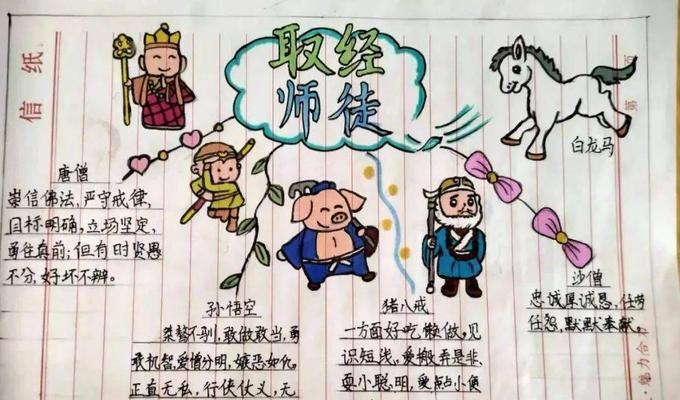 信纸
取经
师徒
第 页
白龙马
唐僧
崇信佛法,严守戒律,
目标明确,立场坚定,
勇往真前;但有时贤愚
不分,好坏不辨。
孙悟空
桀骜不驯,敢做敢当,勇
敢机智,爱憎分明,嫉恶如仇。
正直无私,行侠仗义,无
猪八戒
一方面好吃,懒做,见
识短浅,爱搬弄是非,
耍小聪明,爱占小便
沙僧
忠诚厚诚恳,任劳
任怨,默默奉献。
魅力合